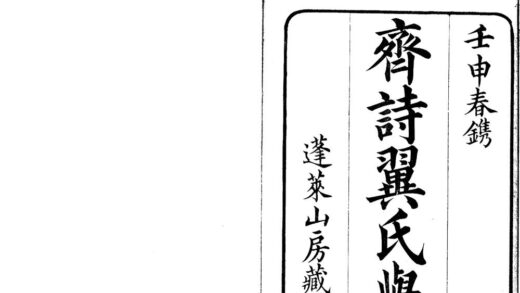 壬申春鐫
齊詩翼氏
蓬萊山房藏